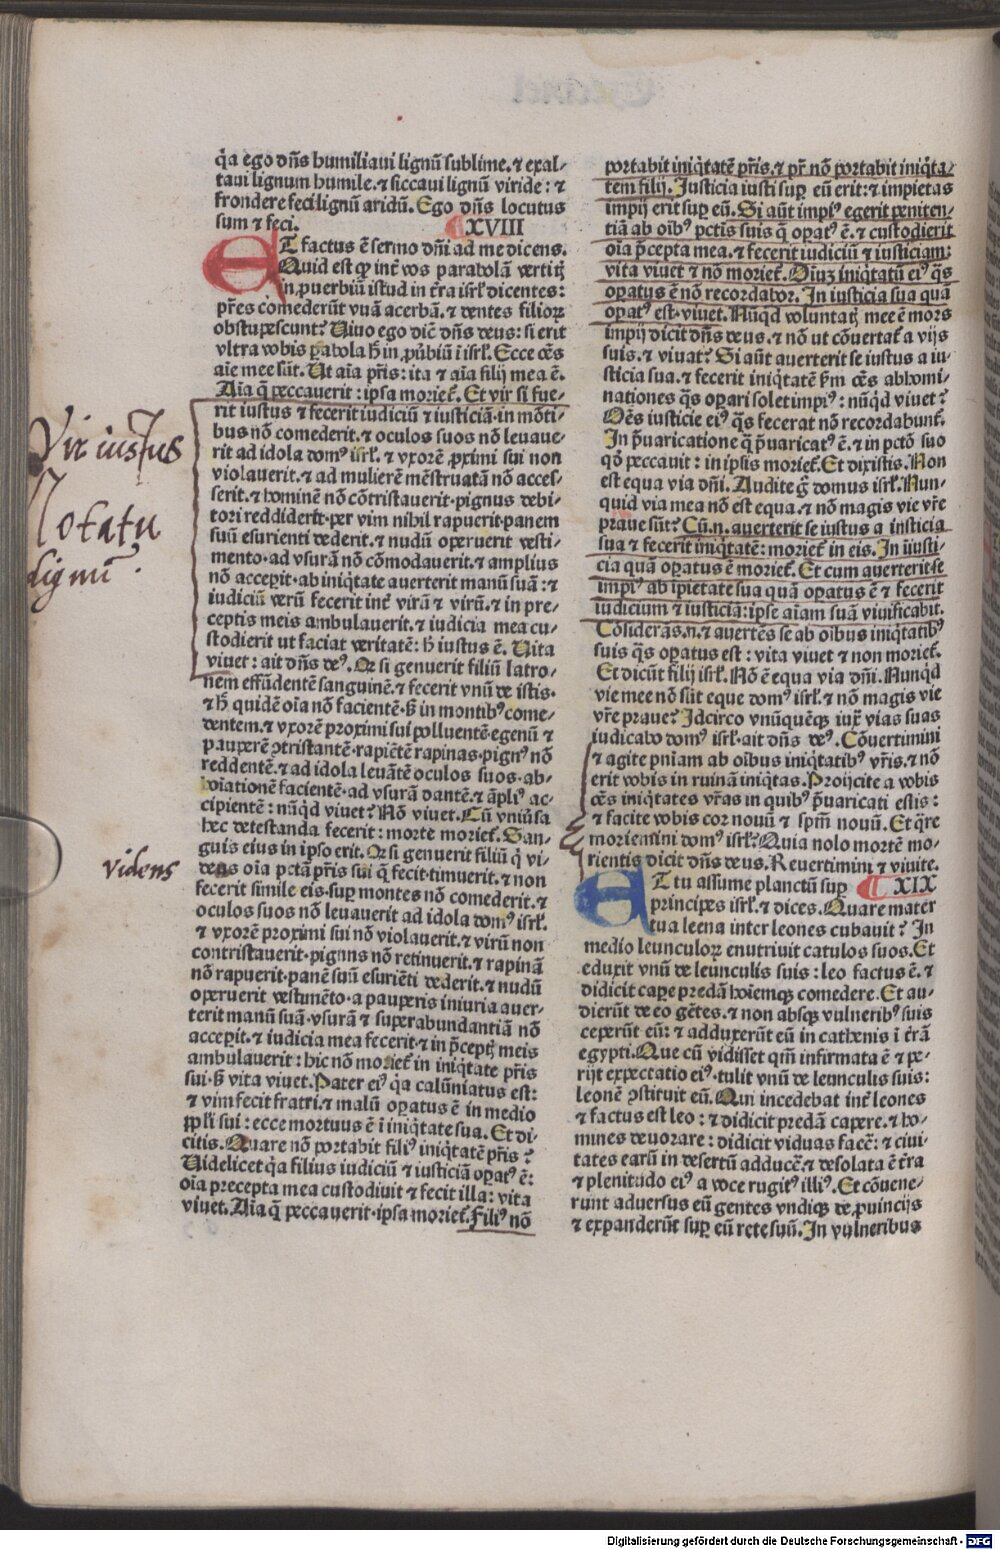 q̇a ego dñs humiliaui lignũ sublime.⁊ exal⸗
taui lignum humile.⁊ siccaui lignũ viride: ⁊
frondere feci lignũ aridũ. Ego dñs locutus
sum ⁊ feci. XVIII
ET factus ẽ sermo dñi ad me dicens.
Quid est ꝙ int̃ vos parabolã vertit{is}
in ꝓuerbiũ istud in t̃ra isrl̃ dicentes:
pr̃es comederũt vuã acerbã.⁊ dentes filioꝝ
obstupescunt? Uiuo ego dic̃ dñs deus: si erit
vltra vobis ꝑabola h̃ in ꝓũbiũ ĩ isrl̃. Ecce oẽs
aĩe mee sũt. Ut aĩa pr̃is: ita ⁊ aĩa filij mea ẽ.
Aĩa q̃ peccauerit: ipsa moriet̃. Et vir si fue⸗
rit iustus ⁊ fecerit iudiciũ ⁊ iusticiã·in mõti⸗
bus nõ comederit.⁊ oculos suos nõ leuaue⸗
rit ad idola domꝰ isrl̃.⁊ vxorẽ ꝓximi sui non
violauerit.⁊ ad mulierẽ mẽstruatã nõ acces⸗
serit.⁊ hominẽ nõ cõtristauerit·pignus debi⸗
tori reddiderit·per vim nihil rapuerit·panem
suũ esurienti dederit.⁊ nudũ operuerit vesti⸗
mento·ad vsurã nõ cõmodauerit.⁊ amplius
nõ acceperit·ab iniq̇tate auerterit manũ suã: ⁊
iudiciũ verũ fecerit int̃ virũ ⁊ virũ.⁊ in pre⸗
ceptis meis ambulauerit.⁊ iudicia mea cu⸗
stodierit ut faciat veritatẽ: h̃ iustus ẽ. Uita
viuet: ait dñs deꝰ. Qr si genuerit filiũ latro⸗
nem effũdentẽ sanguinẽ.⁊ fecerit vnũ de istis·
⁊ h̃ quidẽ oĩa nõ facientẽ·s̃ in montibꝰ come⸗
dentem.⁊ vxorẽ proximi sui polluentẽ·egenũ ⁊
pauperẽ ꝯtristantẽ·rapiẽtẽ rapinas·pignꝰ nõ
reddentẽ.⁊ ad idola leuãtẽ oculos suos·ab⸗
oĩationẽ facientẽ·ad vsurã dantẽ.⁊ ãpliꝰ ac⸗
cipientẽ: nũq̇d viuet? Nõ viuet. Cũ vniũsa
hec detestanda fecerit: morte moriet̃. San⸗
guis eius in ipso erit. Qr si genuerit filiũ q̇ vi⸗
dens oĩa pctã pr̃is sui q̃ fecit·timuerit.⁊ non
fecerit simile eis·suꝑ montes nõ comederit.⁊
oculos suos nõ leuauerit ad idola domꝰ isrl̃.
⁊ vxorẽ proximi sui nõ violauerit.⁊ virũ non
contristauerit·pignus nõ retinuerit.⁊ rapinã
nõ rapuerit·panẽ suũ esuriẽti dederit.⁊ nudũ
operuerit vestimẽto·a pauperis iniuria auer⸗
terit manũ suã·vsurã ⁊ superabundantiã nõ
acceꝑit.⁊ iudicia mea fecerit·⁊ in p̃cept{is} meis
ambulauerit: hic nõ moriet̃ in iniq̇tate pr̃is
sui·s̃ vita viuet. Pater eiꝰ q̇a calũniatus est:
⁊ vim fecit fratri.⁊ malũ oꝑatus ẽ in medio
ppl̃i sui: ecce mortuus ẽ ĩ iniq̇tate sua. Et di⸗
citis. Quare nõ portabit filiꝰ iniq̇tatẽ pr̃is?
Uidelicet q̇a filius iudiciũ ⁊ iusticiã oꝑatꝰ ẽ:
oĩa precepta mea custodiuit ⁊ fecit illa: vita
viuet. Aĩa q̃ peccauerit·ipsa moriet̃. Filiꝰ nõ
portabit iniq̇tatẽ pr̃is.⁊ pr̃ nõ portabit iniq̇ta⸗
tem filij. Justicia iusti suꝑ eũ erit: ⁊ impietas
impij erit suꝑ eũ. Si aũt impiꝰ egerit peniten⸗
tiã ab oĩbꝰ pctis suis q̃ oꝑatꝰ ẽ.⁊ custodierit
oĩa p̃cepta mea.⁊ fecerit iudiciũ ⁊ iusticiam:
vita viuet ⁊ nõ moriet̃. Oĩuz iniq̇tatũ eiꝰ q̃s
oꝑatus ẽ nõ recordabor. In iusticia sua quã
oꝑatꝰ est·viuet. Nũq̇d voluntat{is} mee ẽ mors
impij dicit dñs deus.⁊ nõ ut cõuertat̃ a vijs
suis.⁊ viuat? Si aũt auerterit se iustus a iu⸗
sticia sua.⁊ fecerit iniq̇tatẽ s̃m oẽs abhomi⸗
nationes q̃s oꝑari solet impiꝰ: nũq̇d viuet?
Oẽs iusticie eiꝰ q̃s fecerat nõ recordabunt̃.
In p̃uaricatione q̃ p̃uaricatꝰ ẽ.⁊ in pctõ suo
qd̃ peccauit: in ipsis moriet̃. Et dixistis. Non
est equa via dñi. Audite g̃ domus isrl̃. Nun⸗
quid via mea nõ est equa.⁊ nõ magis vie vr̃e
praue sũt? Cũ.n. auerterit se iustus a iusticia
sua ⁊ fecerit iniq̇tatẽ: moriet̃ in eis. In iniusti⸗
cia quã oꝑatus ẽ moriet̃. Et cum auerterit se
impiꝰ ab ĩpietate sua quã oꝑatus ẽ ⁊ fecerit
iudicium ⁊ iusticiã: ipse aĩam suã viuificabit.
Cõsiderãs.n.⁊ auertẽs se ab oĩbus iniq̇tatibꝰ
suis q̃s oꝑatus est: vita viuet ⁊ non moriet̃.
Et dicũt filij isrl̃. Nõ ẽ equa via dñi. Nunq̇d
vie mee nõ sũt eque domꝰ isrl̃.⁊ nõ magis vie
vr̃e praue? Jdcirco vnũquẽqꝫ iux̃ vias suas
iudicabo domꝰ isrl̃·ait dñs deꝰ. Cõuertimini
⁊ agite pñiam ab oĩbus iniq̇tatibꝰ vr̃is.⁊ nõ
erit vobis in ruinã iniq̇tas. Proijcite a vobis
oẽs iniq̇tates vr̃as in quibꝰ p̃uaricati estis:
⁊ facite vobis cor nouũ ⁊ spm̃ nouũ. Et q̃re
moriemini domꝰ isrl̃? Quia nolo mortẽ mo⸗
rientis dicit dñs deus. Reuertimini ⁊ viuite.
ET tu assume planctũ suꝑ XIX
principes isrl̃.⁊ dices. Quare mater
tua leena inter leones cubauit? In
medio leunculoꝝ enutriuit catulos suos. Et
eduxit vnũ de leunculis suis: leo factus ẽ.⁊
didicit cape predã hoĩemqꝫ comedere. Et au⸗
dierũt de eo gẽtes.⁊ non absqꝫ vulneribꝰ suis
ceperũt eũ: ⁊ adduxerũt eũ in cathenis ĩ t̃rã
egypti. Que cũ vidisset qm̃ infirmata ẽ ⁊ pe⸗
rijt expectatio eiꝰ·tulit vnũ de leunculis suis:
leonẽ ꝯstituit eũ. Qui incedebat int̃ leones
⁊ factus est leo: ⁊ didicit predã capere.⁊ ho⸗
mines deuorare: didicit viduas facẽ: ⁊ ciui⸗
tates earũ in desertũ adducẽ.⁊ desolata ẽ t̃ra
⁊ plenitudo eiꝰ a voce rugitꝰ illiꝰ. Et cõuene⸗
runt aduersus eũ gentes vndiqꝫ de ꝓuincijs
⁊ expanderũt suꝑ eũ rete suũ. In vulneribus
Vir iustus
Notatu
dignũ.
videns
Digitalisierung gefördert durch die Deutsche Forschungsgemeinschaft - DFG